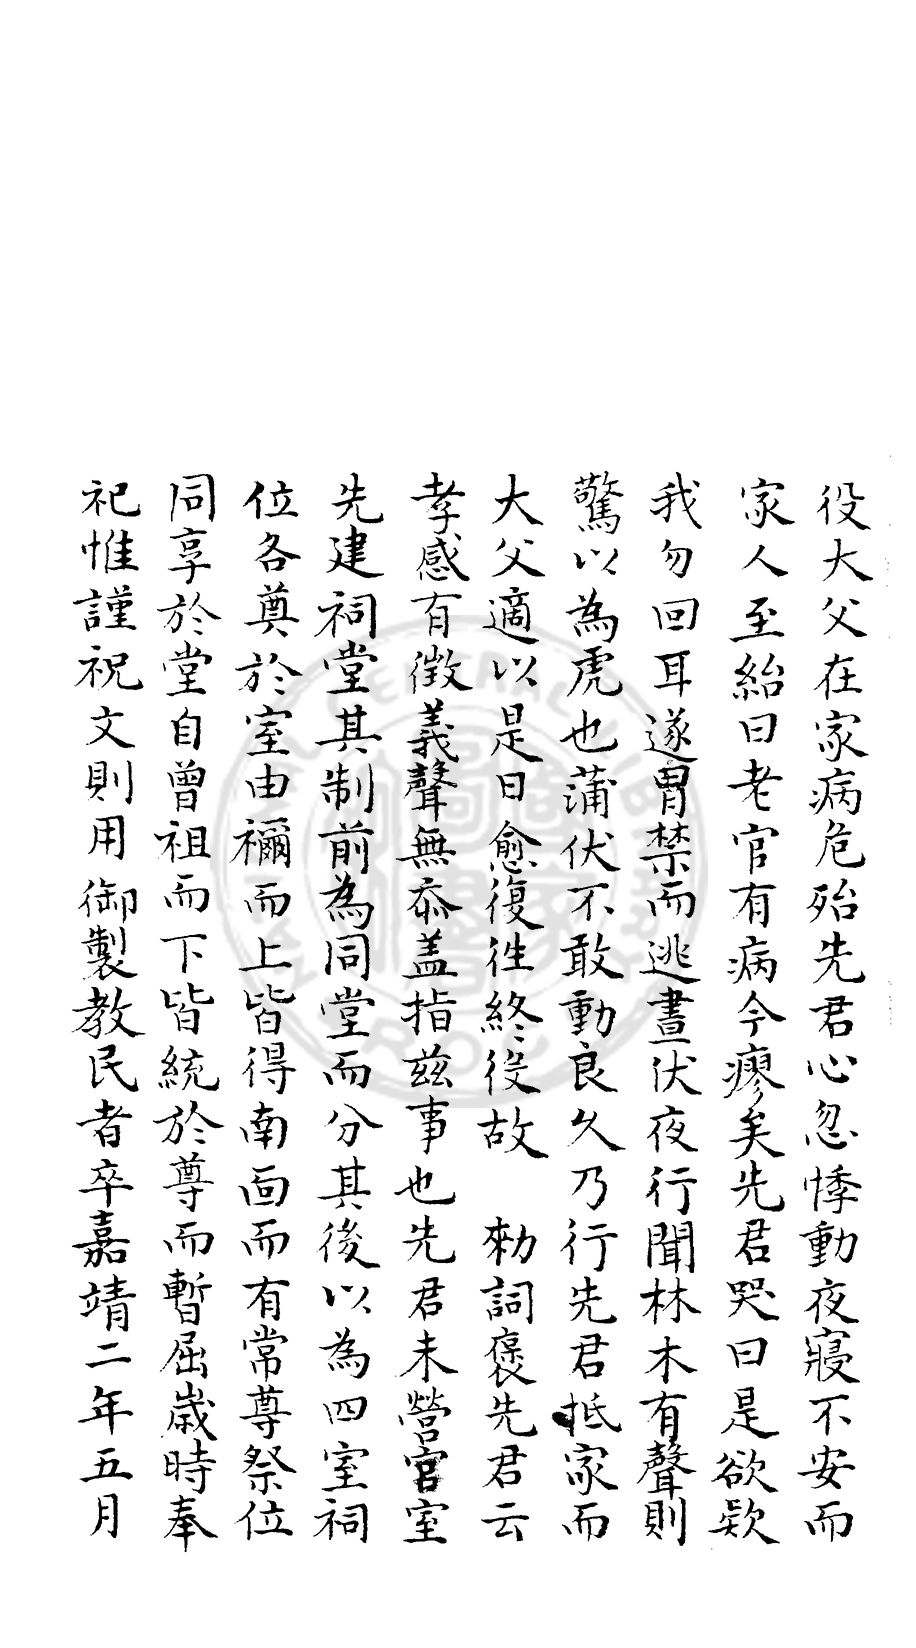 役大父在家病危殆先君心忽悸動夜寢不安而
家人至紿曰老官有病今瘳矣先君哭曰是欲欺
我勿回耳遂冒禁而逃晝伏夜行聞林木有聲則
驚以為虎也蒲伏不敢動良久乃行先君抵家而
大父適以是日愈復徃終役故 勑詞褒先君云
孝感有徵義聲無忝盖指兹事也先君未營宫室
先建祠堂其制前為同堂而分其後以為四室祠
位各奠於室由禰而上皆得南面而有常尊祭位
同享於堂自曾祖而下皆統於尊而暫屈歲時奉
祀惟謹祝文則用御製教民者卒嘉靖二年五月
CENTRAL